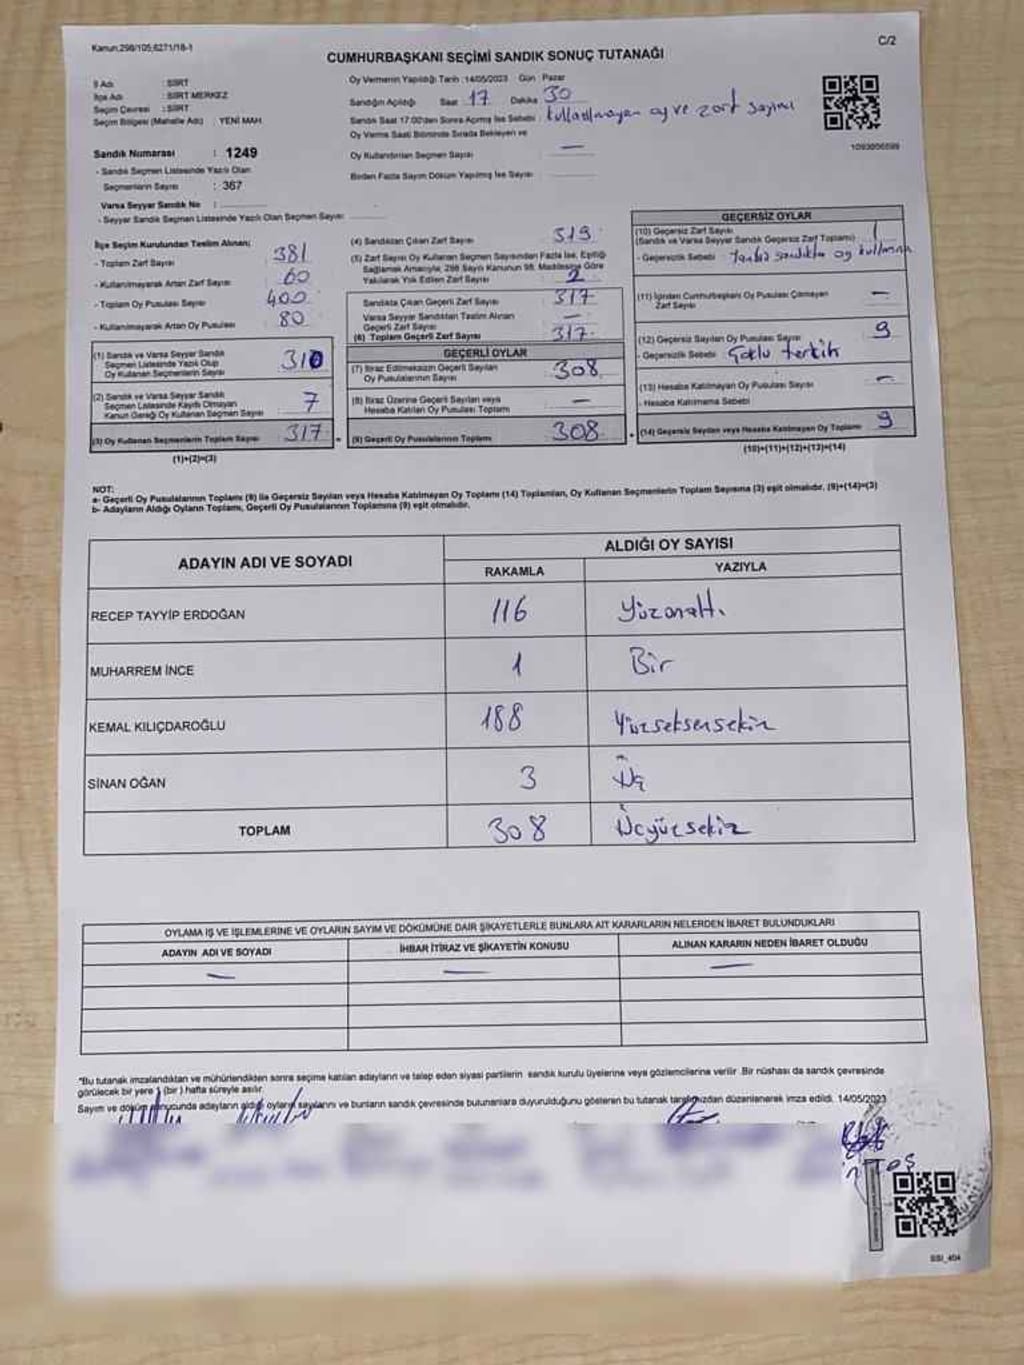 Kanun.298/105;6271/18-1
C/2
CUMHURBAŞKANI SEÇİMİ SANDIK SONUÇ TUTANAĞI
İl Adı : SİİRT
İlçe Adı : SİİRT MERKEZ
Seçim Çevresi : SİİRT
Seçim Bölgesi (Mahalle Adı) : YENİ MAH
Sandık Numarası : 1249
- Sandık Seçmen Listesinde Yazılı Olan
Seçmenlerin Sayısı : 367
Varsa Seyyar Sandık No :
- Seyyar Sandık Seçmen Listesinde Yazılı Olan Seçmen Sayısı:
Oy Vermenin Yapıldığı Tarih :14/05/2023 Gün : Pazar
Sandığın Açıldığı Saat 17 Dakika 30
Sandık Saat 17:00'den Sonra Açılmış İse Sebebi : kullanılmayan oy ve zarf sayımı
Oy Verme Saati Bitiminde Sırada Bekleyen ve
Oy Kullandırılan Seçmen Sayısı : —
Birden Fazla Sayım Döküm Yapılmış İse Sayısı :
1093906599
İlçe Seçim Kurulundan Teslim Alınan;
- Toplam Zarf Sayısı : 381
- Kullanılmayarak Artan Zarf Sayısı : 60
- Toplam Oy Pusulası Sayısı : 400
- Kullanılmayarak Artan Oy Pusulası : 80
(1) Sandık ve Varsa Seyyar Sandık
Seçmen Listesinde Yazılı Olup
Oy Kullanan Seçmenlerin Sayısı 310
(2) Sandık ve Varsa Seyyar Sandık
Seçmen Listesinde Kaydı Olmayan
Kanun Gereği Oy Kullanan Seçmen Sayısı 7
(3) Oy Kullanan Seçmenlerin Toplam Sayısı 317
(1)+(2)=(3)
(4) Sandıktan Çıkan Zarf Sayısı : 319
(5) Zarf Sayısı Oy Kullanan Seçmen Sayısından Fazla İse, Eşitliği
Sağlamak Amacıyla; 298 Sayılı Kanunun 98. Maddesine Göre
Yakılarak Yok Edilen Zarf Sayısı : 2
Sandıkta Çıkan Geçerli Zarf Sayısı 317
Varsa Seyyar Sandıktan Teslim Alınan
Geçerli Zarf Sayısı —
(6) Toplam Geçerli Zarf Sayısı 317
GEÇERLİ OYLAR
(7) İtiraz Edilmeksizin Geçerli Sayılan
Oy Pusulalarının Sayısı 308
(8) İtiraz Üzerine Geçerli Sayılan veya
Hesaba Katılan Oy Pusulası Toplamı —
(9) Geçerli Oy Pusulalarının Toplamı 308
GEÇERSİZ OYLAR
(10) Geçersiz Zarf Sayısı
(Sandık ve Varsa Seyyar Sandık Geçersiz Zarf Toplamı)
- Geçersizlik Sebebi :
(11) İçinden Cumhurbaşkanı Oy Pusulası Çıkmayan
Zarf Sayısı —
(12) Geçersiz Sayılan Oy Pusulası Sayısı 9
- Geçersizlik Sebebi : Çoklu tercih
(13) Hesaba Katılmayan Oy Pusulası Sayısı —
- Hesaba Katılmama Sebebi
(14) Geçersiz Sayılan veya Hesaba Katılmayan Oy Toplamı 9
(10)+(11)+(12)+(13)=(14)
NOT:
a- Geçerli Oy Pusulalarının Toplamı (9) ile Geçersiz Sayılan veya Hesaba Katılmayan Oy Toplamı (14) Toplamları, Oy Kullanan Seçmenlerin Toplam Sayısına (3) eşit olmalıdır. (9)+(14)=(3)
b- Adayların Aldığı Oyların Toplamı, Geçerli Oy Pusulalarının Toplamına (9) eşit olmalıdır.
ADAYIN ADI VE SOYADI
ALDIĞI OY SAYISI
RAKAMLA YAZIYLA
RECEP TAYYİP ERDOĞAN 116 Yüzonaltı
MUHARREM İNCE 1 Bir
KEMAL KILIÇDAROĞLU 188 Yüzseksensekiz
SİNAN OĞAN 3 Üç
TOPLAM 308 Üçyüzsekiz
OYLAMA İŞ VE İŞLEMLERİNE VE OYLARIN SAYIM VE DÖKÜMÜNE DAİR ŞİKAYETLERLE BUNLARA AİT KARARLARIN NELERDEN İBARET BULUNDUKLARI
ADAYIN ADI VE SOYADI İHBAR İTİRAZ VE ŞİKAYETİN KONUSU ALINAN KARARIN NEDEN İBARET OLDUĞU
— — —
"Bu tutanak imzalandıktan ve mühürlendikten sonra seçime katılan adayların ve talep eden siyasi partilerin sandık kurulu üyelerine veya gözlemcilerine verilir .Bir nüshası da sandık çevresinde
görülecek bir yere 1 (bir ) hafta süreyle asılır.
Sayım ve döküm sonucunda adayların aldığı oyların sayılarını ve bunların sandık çevresinde bulunanlara duyurulduğunu gösteren bu tutanak tarafımızdan düzenlenerek imza edildi. 14/05/2023
SSI_404